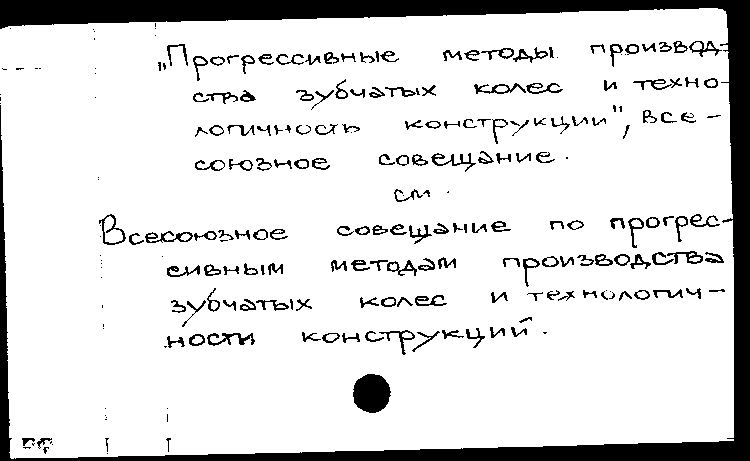 „Прогрессивные методы производ-
ства зубчатых колес и техно-
логичность конструкции", все-
союзное совещание.
см.
Всесоюзное совещание по прогрес-
сивным методам производства
зубчатых колес и технологич-
ности конструкций.